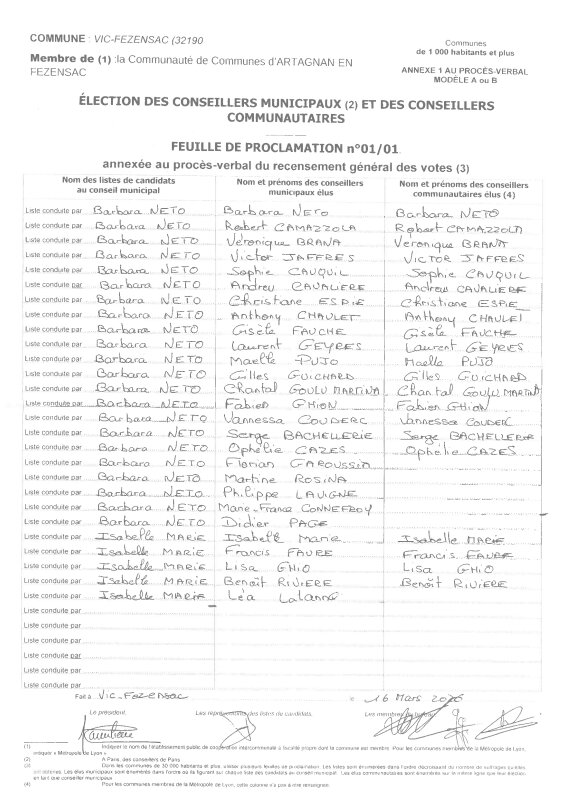 COMMUNE : VIC-FEZENSAC (32190
Membre de (1) :la Communauté de Communes d'ARTAGNAN EN FEZENSAC
Communes
de 1 000 habitants et plus
ANNEXE 1 AU PROCÈS-VERBAL
MODÈLE A ou B
ÉLECTION DES CONSEILLERS MUNICIPAUX (2) ET DES CONSEILLERS
COMMUNAUTAIRES
FEUILLE DE PROCLAMATION n°01/01
annexée au procès-verbal du recensement général des votes (3)
Nom des listes de candidats au conseil municipal | Nom et prénoms des conseillers municipaux élus | Nom et prénoms des conseillers communautaires élus (4)
Liste conduite par Barbara NETO | Barbara NETO | Barbara NETO
Liste conduite par Barbara NETO | Robert CAMAZZOLA | Robert CAMAZZOLA
Liste conduite par Barbara NETO | Véronique BRANA | Veronique BRANA
Liste conduite par Barbara NETO | Victor JAFFRES | VICTOR JAFFRES
Liste conduite par Barbara NETO | Sophie CAUQUIL | Sophie CAUQUIL
Liste conduite par Barbara NETO | Andreu CAVALIERE | Andreu CAVALIERE
Liste conduite par Barbara NETO | Christiane ESPIE | Christiane ESPIE
Liste conduite par Barbara NETO | Anthony CHAULET | Anthony CHAULET
Liste conduite par Barbara NETO | Gisèle FAUCHE | Gisèle FAUCHE
Liste conduite par Barbara NETO | Laurent GEYRES | Laurent GEYRES
Liste conduite par Barbara NETO | Maelle PUJO | Maelle PUJO
Liste conduite par Barbara NETO | Gilles GUICHARD | Gilles GUICHARD
Liste conduite par Barbara NETO | Chantal GOULU MARTINA | Chantal GOULU MARTINA
Liste conduite par Barbara NETO | Fabien GHION | Fabien GHION
Liste conduite par Barbara NETO | Vannessa COUDERC | Vannessa COUDERC
Liste conduite par Barbara NETO | Serge BACHELLERIE | Serge BACHELLERIE
Liste conduite par Barbara NETO | Ophélie CAZES | Ophélie CAZES
Liste conduite par Barbara NETO | Florian GAROUSSIN
Liste conduite par Barbara NETO | Martine ROSINA
Liste conduite par Barbara NETO | Philippe LAVIGNE
Liste conduite par Barbara NETO | Marie-France CONNEFROY
Liste conduite par Barbara NETO | Didier PAGE
Liste conduite par Isabelle MARIE | Isabelle Marie | Isabelle MARIE
Liste conduite par Isabelle MARIE | Francis FAURE | Francis FAURE
Liste conduite par Isabelle MARIE | Lisa GHIO | Lisa GHIO
Liste conduite par Isabelle MARIE | Benoît RIVIERE | Benoît RIVIERE
Liste conduite par Isabelle MARIE | Léa Lalanne
Liste conduite par
Liste conduite par
Liste conduite par
Liste conduite par
Liste conduite par
Liste conduite par
Fait à Vic-Fezensac le 16 Mars 2026
Le président, Les représentants des listes de candidats, Les membres du
(1) Indiquer le nom de l'établissement public de coopération intercommunale à fiscalité propre dont la commune est membre. Pour les communes membres de la Métropole de Lyon,
indiquer « Métropole de Lyon ».
(2) A Paris, des conseillers de Paris
(3) Dans les communes de 30 000 habitants et plus, utiliser plusieurs feuilles de proclamation. Les listes sont énumérées dans l'ordre décroissant du nombre de suffrages qu'elles
ont obtenus. Les élus municipaux sont énumérés dans l'ordre où ils figurent sur chaque liste des candidats au conseil municipal. Les élus communautaires sont énumérés sur la même ligne que leur élection
en tant que conseiller municipaux
(4) Pour les communes membres de la Métropole de Lyon, cette colonne n'a pas à être renseignée